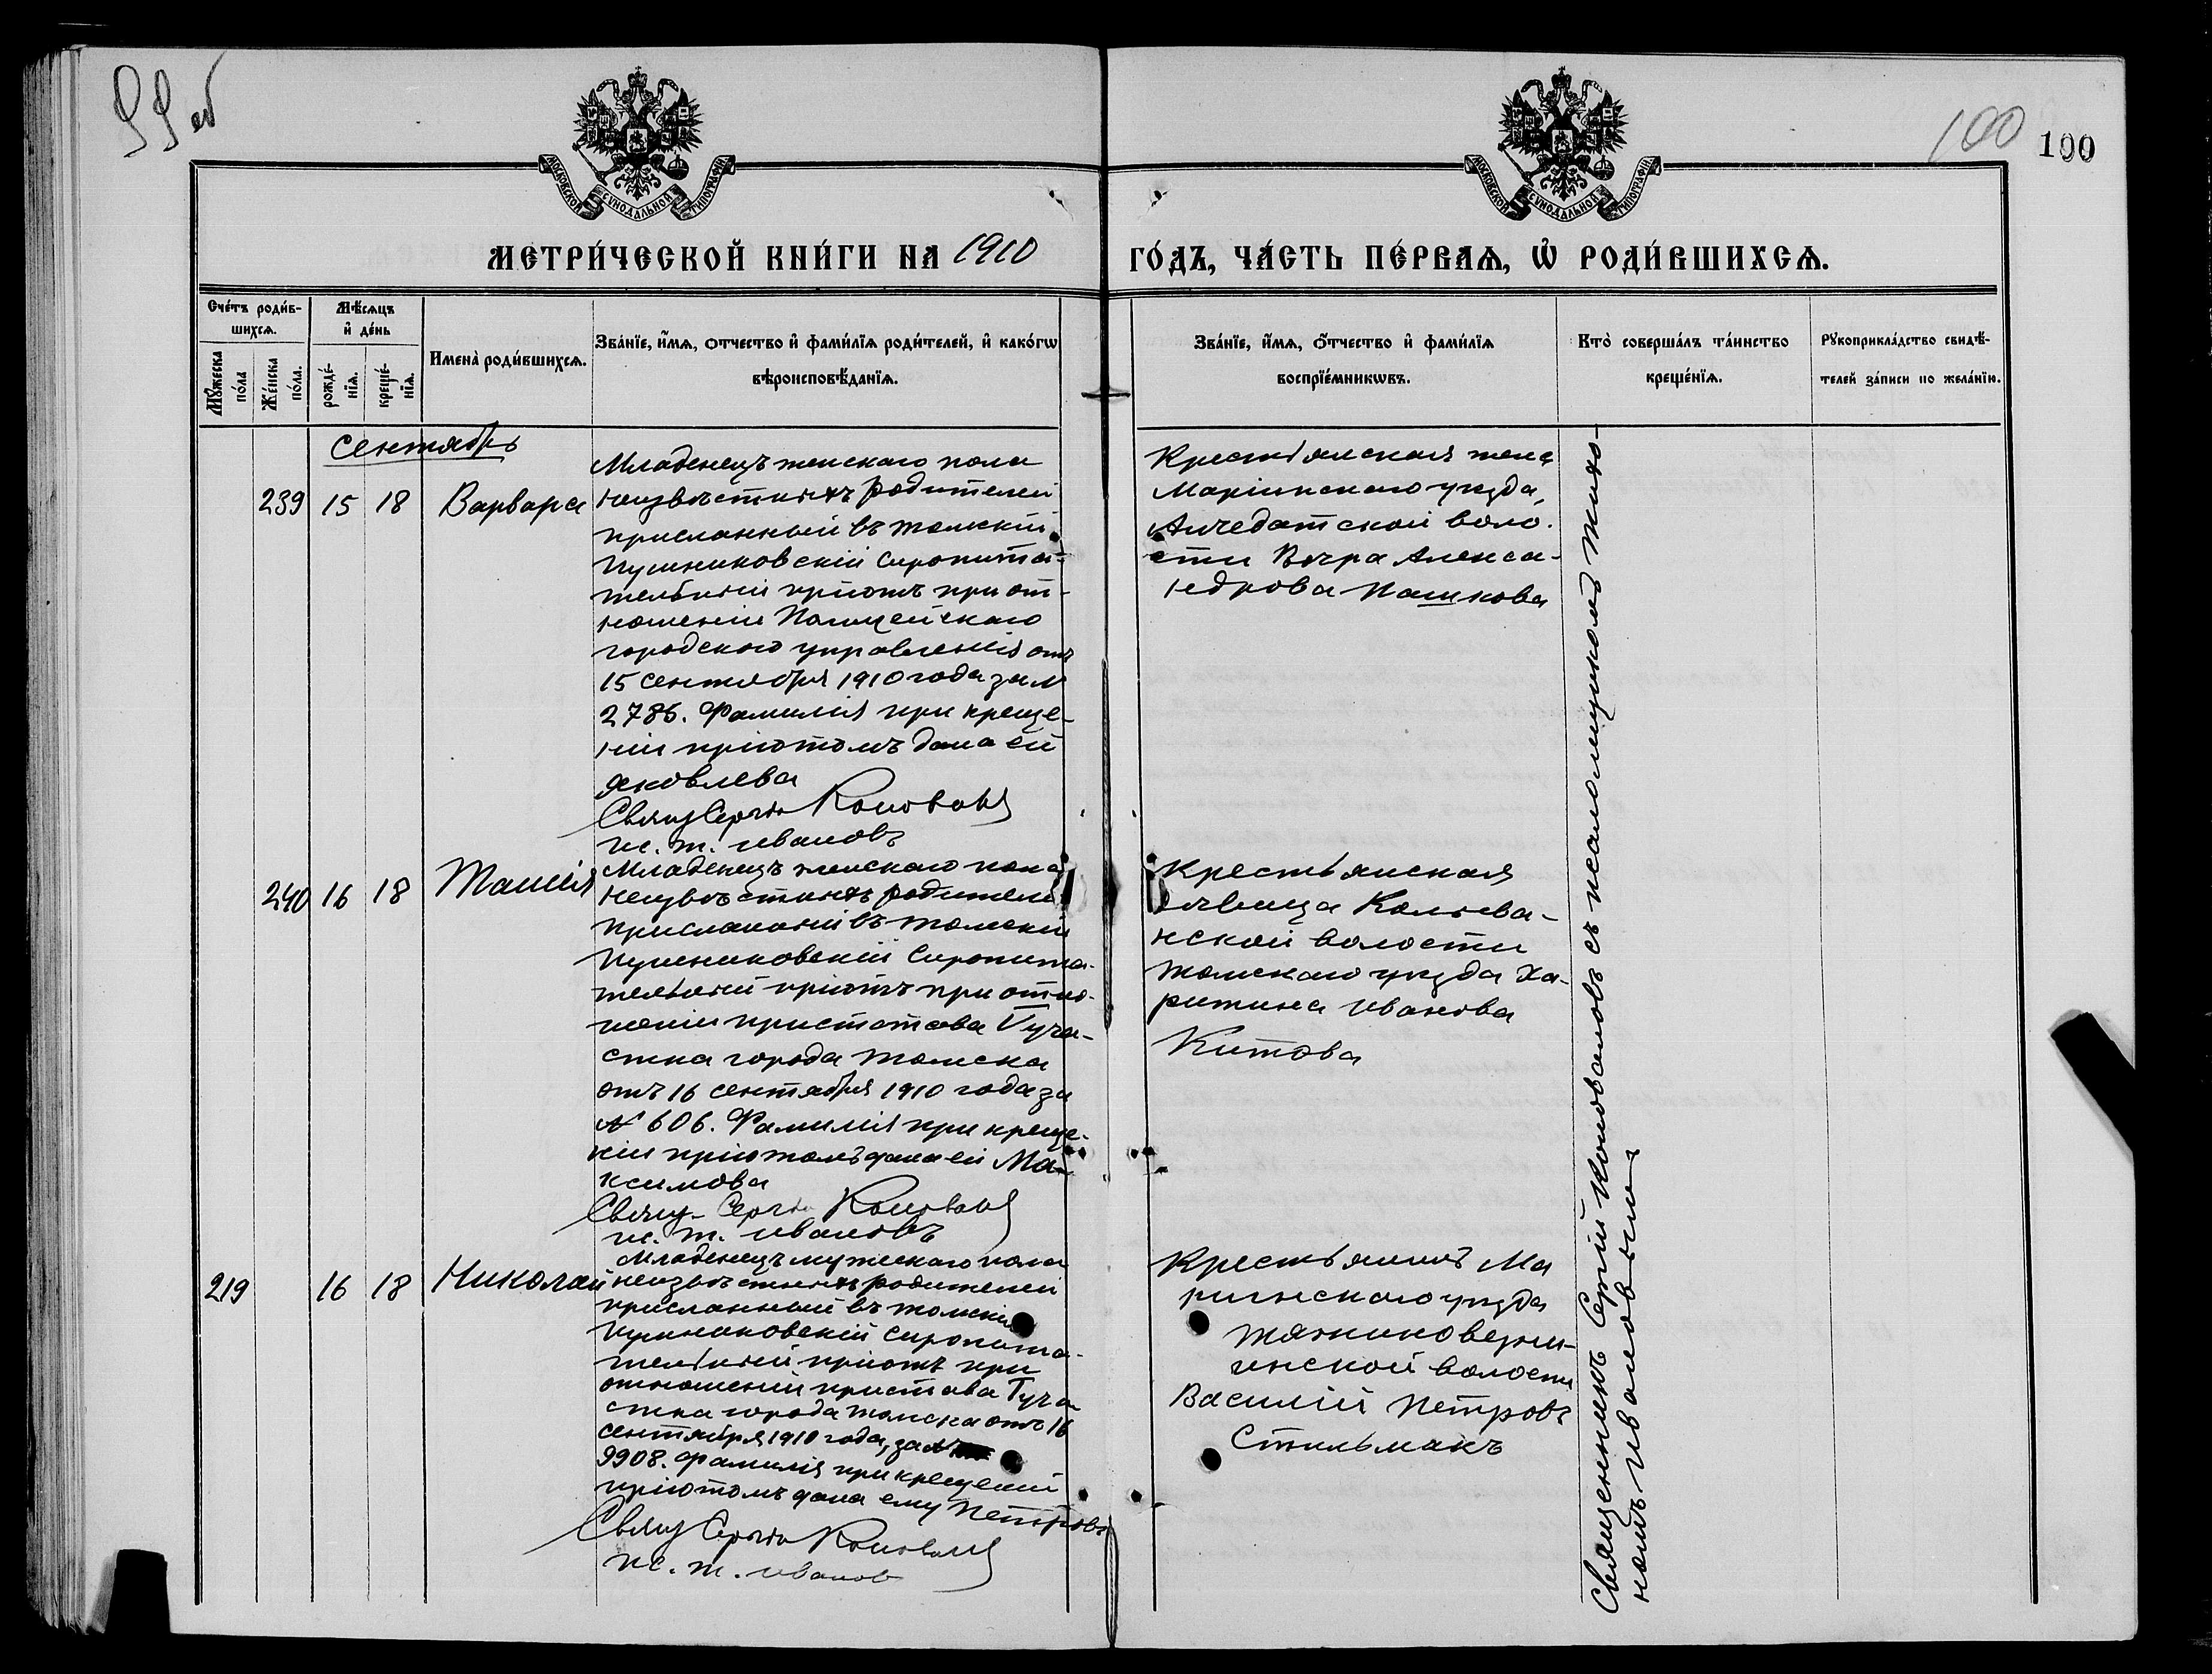 99 об
100
100
МОСКОВСКОЙ СѴНОДАЛЬНОЙ ТИПОГРАФІИ
МОСКОВСКОЙ СѴНОДАЛЬНОЙ ТИПОГРАФІИ
МЕТРИ́ЧЕСКОЙ КНИ́ГИ НА 1910
ГО́ДЪ, ЧА́СТЬ ПЕ́РВАѦ, Ѡ҆ РОДИ́ВШИХСѦ.
Сче́тъ роди́в-
шихсѧ.
Мꙋ́жеска по́ла
Же́нска по́ла.
Мѣ́сѧцъ
и҆ де́нь
рожде́-
нїѧ.
креще́-
нїѧ.
Имена̀ роди́вшихсѧ.
Зва́нїе, и҆́мѧ, о҆́тчество и҆ фами́лїѧ роди́телей, и҆ како́гѡ
вѣроисповѣ́данїѧ.
Зва́нїе, и҆́мѧ, о҆́тчество и҆ фами́лїѧ
воспрїе́мникѡвъ.
Кто̀ соверша́лъ та́инство
креще́нїѧ.
Рꙋкоприкла́дство свидѣ́-
телей за́писи по жела́нїю.
Сентябрь
239 15 18 Варвара
Младенецъ женскаго пола
неизвѣстныхъ родителей
присланный въ Томскій
Пушниковскій Сиропита-
тельный пріютъ при от-
ношеніи Полицейскаго
городского управленія отъ
15 сентября 1910 года за №
2786. Фамилія при креще-
ніи пріютомъ дана ей
Яковлева
Свящ Сергій Коновал
пс. Т. Ивановъ
Крестьянская жена
Маріинскаго уѣзда,
Алчедатской воло-
сти Вѣра Алекса-
ндрова Пашкова
240 16 18 Таисія
Младенецъ женскаго пола
неизвѣстныхъ родителей
присланный въ Томскій
Пушниковскій Сиропита-
тельный пріютъ при отно-
шеніи пристава V уча-
стка города Томска
отъ 16 сентября 1910 года за
№ 606. Фамилія при креще-
ніи пріютомъ дана ей Ма-
ксимова
Свящ. Сергій Коновал
пс. Т. Ивановъ
Крестьянская
дѣвица Колыва-
нской волости
Томскаго уѣзда Ха-
ритина Иванова
Китова
219 16 18 Николай
Младенецъ мужескаго пола
неизвѣстныхъ родителей
присланный въ Томскій
Пушниковскій Сиропита-
тельный пріютъ при
отношеніи пристава I уча
стка города Томска отъ 16
сентября 1910 года, за №
9908. Фамилія при крещеніи
пріютомъ дана ему Петровъ
Свящ Сергій Коновал
пс. Т. Иванов
Крестьянинъ Ма
ріинскаго уѣзда
Тяжиновершининской волости
Василій Петровъ
Стильмакъ
Священникъ Сергій Коноваловъ съ псаломщикомъ Тихо-
номъ Ивановымъ